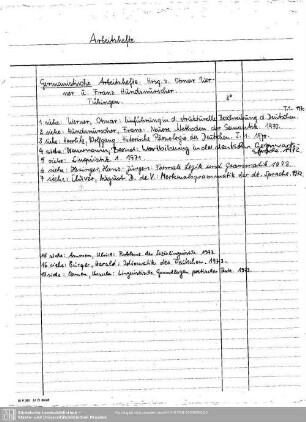 Arbeitshefte
Germanistische Arbeitshefte. Hrsg. v. Otmar Wer-
ner u. Franz Hundsnurscher.
Tübingen. 8°
T.1. 1970
1 siehe: Werner, Otmar: Einführung in d. strukturelle Beschreibung d. Deutschen.
2 siehe: Hundsnurscher, Franz: Neuere Methoden der Semantik. 1970.
3 siehe: Herrlitz, Wolfgang: Historische Phonologie des Deutschen. T.1. 1970.
4 siehe: Naumann, Bernd: Wortbildung in der deutschen Gegenwarts-
sprache. 1972
5 siehe: Linguistik 1. 1971.
6 siehe: Heringer, Hans-Jürgen: Formale Logik und Grammatik. 1972.
7 siehe: Clivio, August B. de V.: Merkmalsgrammatik der dt. Sprache. 1972.
15 siehe: Ammon, Ulrich: Probleme der Soziolinguistik. 1973.
16 siehe: Burger, Harald: Idiomatik des Deutschen. 1973.
siehe: Oomen, Ursula: Linguistische Grundlagen poetischer Texte. 1973.